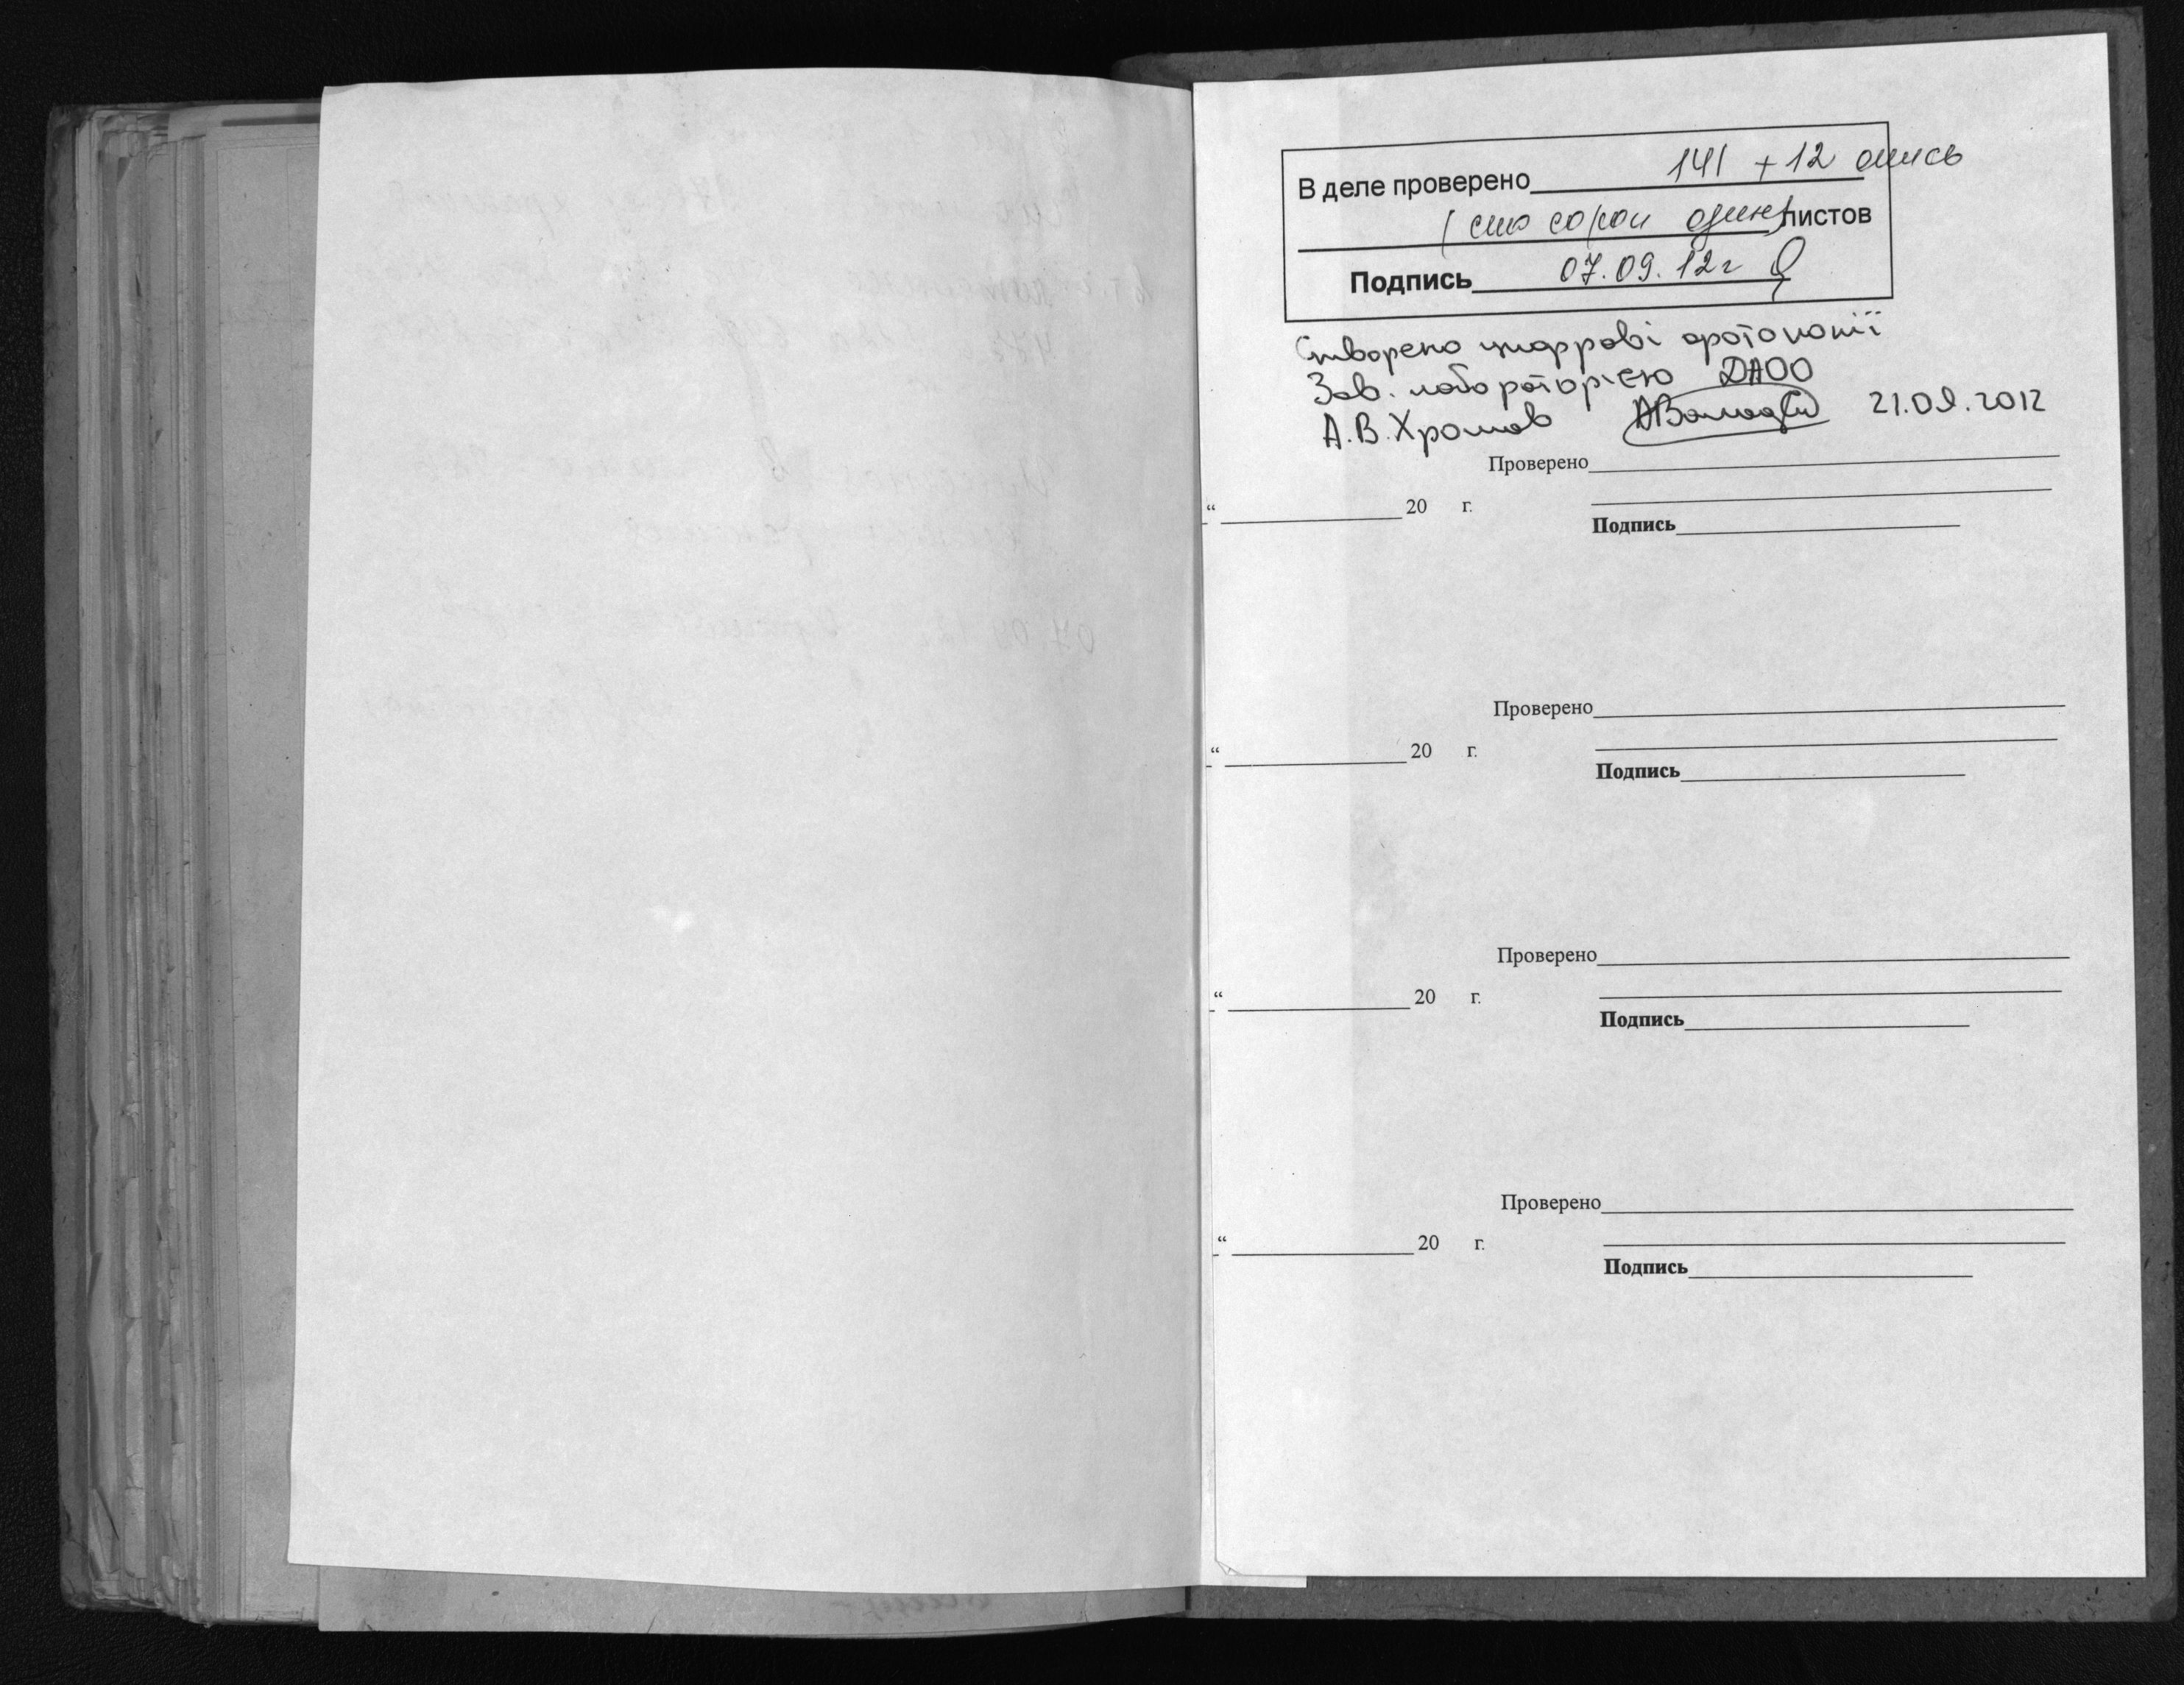 В деле проверено 141 + 12 опись
(сто сорок один) листов
Подпись 07.09.12г
Створено цифрові фотокопії
Зав. лабораторією ДАОО
А.В.Хромов 21.09.2012
Проверено
“ 20 г.
Подпись
Проверено
“ 20 г.
Подпись
Проверено
“ 20 г.
Подпись
Проверено
“ 20 г.
Подпись